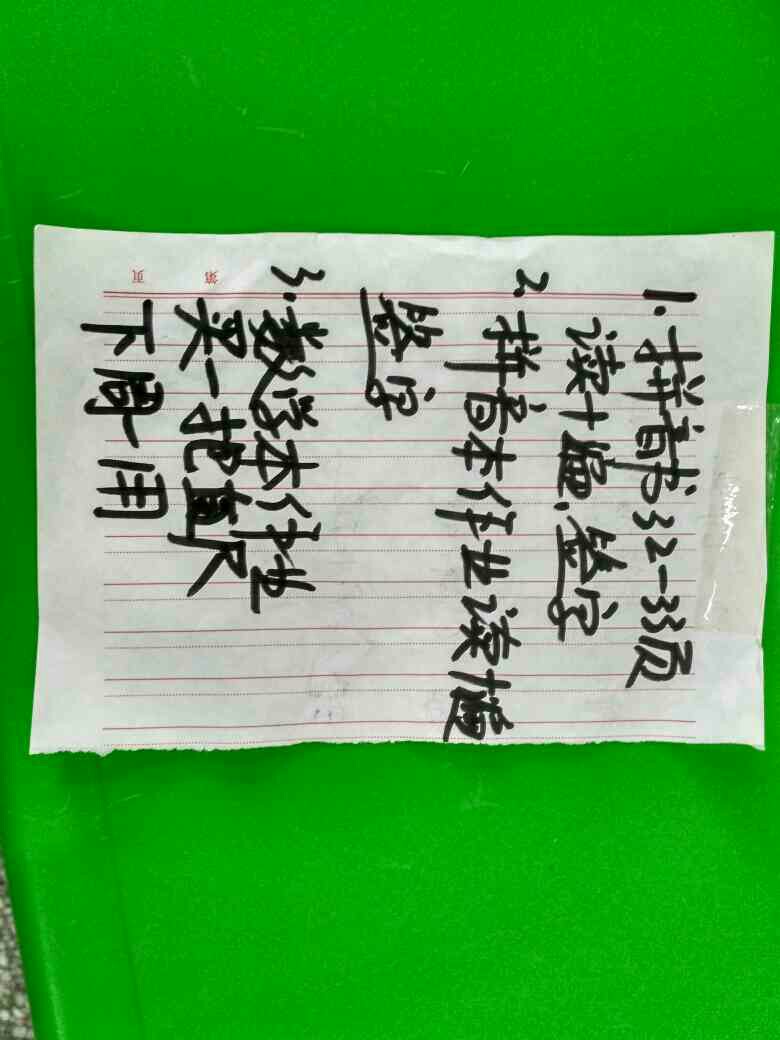 1.拼音书32-33页
读十遍.签字
2.拼音本作业读十遍
签字
3.数学本作业
买一把直尺
下周一用
第 页